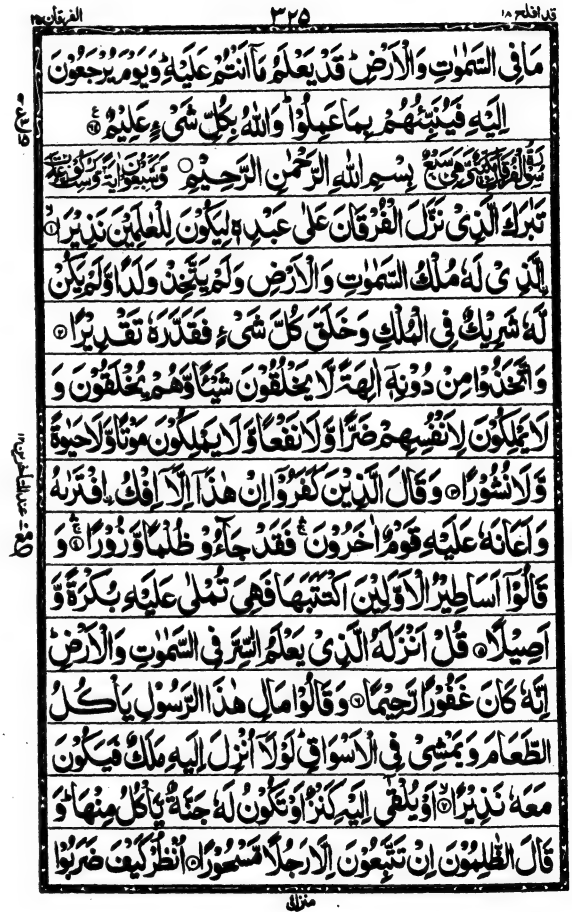 قد افلح ١٨ ٣٢٥ الفرقان ٢٥
مَا فِی السَّمٰوٰتِ وَالْاَرْضِ ؕ قَدْ یَعْلَمُ مَاۤ اَنْتُمْ عَلَیْهِ ؕ وَیَوْمَ یُرْجَعُوْنَ
اِلَیْهِ فَیُنَبِّئُهُمْ بِمَا عَمِلُوْا ؕ وَاللّٰهُ بِكُلِّ شَیْءٍ عَلِیْمٌ ۟ ﴿٦٤﴾
بِسْمِ اللّٰهِ الرَّحْمٰنِ الرَّحِیْمِ
تَبٰرَكَ الَّذِیْ نَزَّلَ الْفُرْقَانَ عَلٰی عَبْدِهٖ لِیَكُوْنَ لِلْعٰلَمِیْنَ نَذِیْرَا ۙ﴿١﴾
اِلَّذِیْ لَهٗ مُلْكُ السَّمٰوٰتِ وَالْاَرْضِ وَلَمْ یَتَّخِذْ وَلَدًا وَّلَمْ یَكُنْ
لَّهٗ شَرِیْكٌ فِی الْمُلْكِ وَخَلَقَ كُلَّ شَیْءٍ فَقَدَّرَهٗ تَقْدِیْرًا ﴿٢﴾
وَاتَّخَذُوْا مِنْ دُوْنِهٖۤ اٰلِهَةً لَّا یَخْلُقُوْنَ شَیْـًٔا وَّهُمْ یُخْلَقُوْنَ وَ
لَا یَمْلِكُوْنَ لِاَنْفُسِهِمْ ضَرًّا وَّلَا نَفْعًا وَّلَا یَمْلِكُوْنَ مَوْتًا وَّلَا حَیٰوةً
وَّلَا نُشُوْرًا ﴿٣﴾ وَقَالَ الَّذِیْنَ كَفَرُوْۤا اِنْ هٰذَاۤ اِلَّاۤ اِفْكُ اِ۟فْتَرٰىهُ
وَاَعَانَهٗ عَلَیْهِ قَوْمٌ اٰخَرُوْنَ ۛۚ فَقَدْ جَآءُوْ ظُلْمًا وَّزُوْرًا ۛۚ﴿٤﴾ وَ
قَالُوْۤا اَسَاطِیْرُ الْاَوَّلِیْنَ اكْتَتَبَهَا فَهِیَ تُمْلٰی عَلَیْهِ بُكْرَةً وَّ
اَصِیْلًا ﴿٥﴾ قُلْ اَنْزَلَهُ الَّذِیْ یَعْلَمُ السِّرَّ فِی السَّمٰوٰتِ وَالْاَرْضِ ؕ
اِنَّهٗ كَانَ غَفُوْرًا رَّحِیْمًا ﴿٦﴾ وَقَالُوْا مَالِ هٰذَا الرَّسُوْلِ یَاْكُلُ
الطَّعَامَ وَیَمْشِیْ فِی الْاَسْوَاقِ ؕ لَوْلَاۤ اُنْزِلَ اِلَیْهِ مَلَكٌ فَیَكُوْنَ
مَعَهٗ نَذِیْرًا ۙ﴿٧﴾ اَوْ یُلْقٰۤی اِلَیْهِ كَنْزٌ اَوْ تَكُوْنُ لَهٗ جَنَّةٌ یَّاْكُلُ مِنْهَا ؕ وَ
قَالَ الظّٰلِمُوْنَ اِنْ تَتَّبِعُوْنَ اِلَّا رَجُلًا مَّسْحُوْرًا ﴿٨﴾ اُنْظُرْ كَیْفَ ضَرَبُوْا